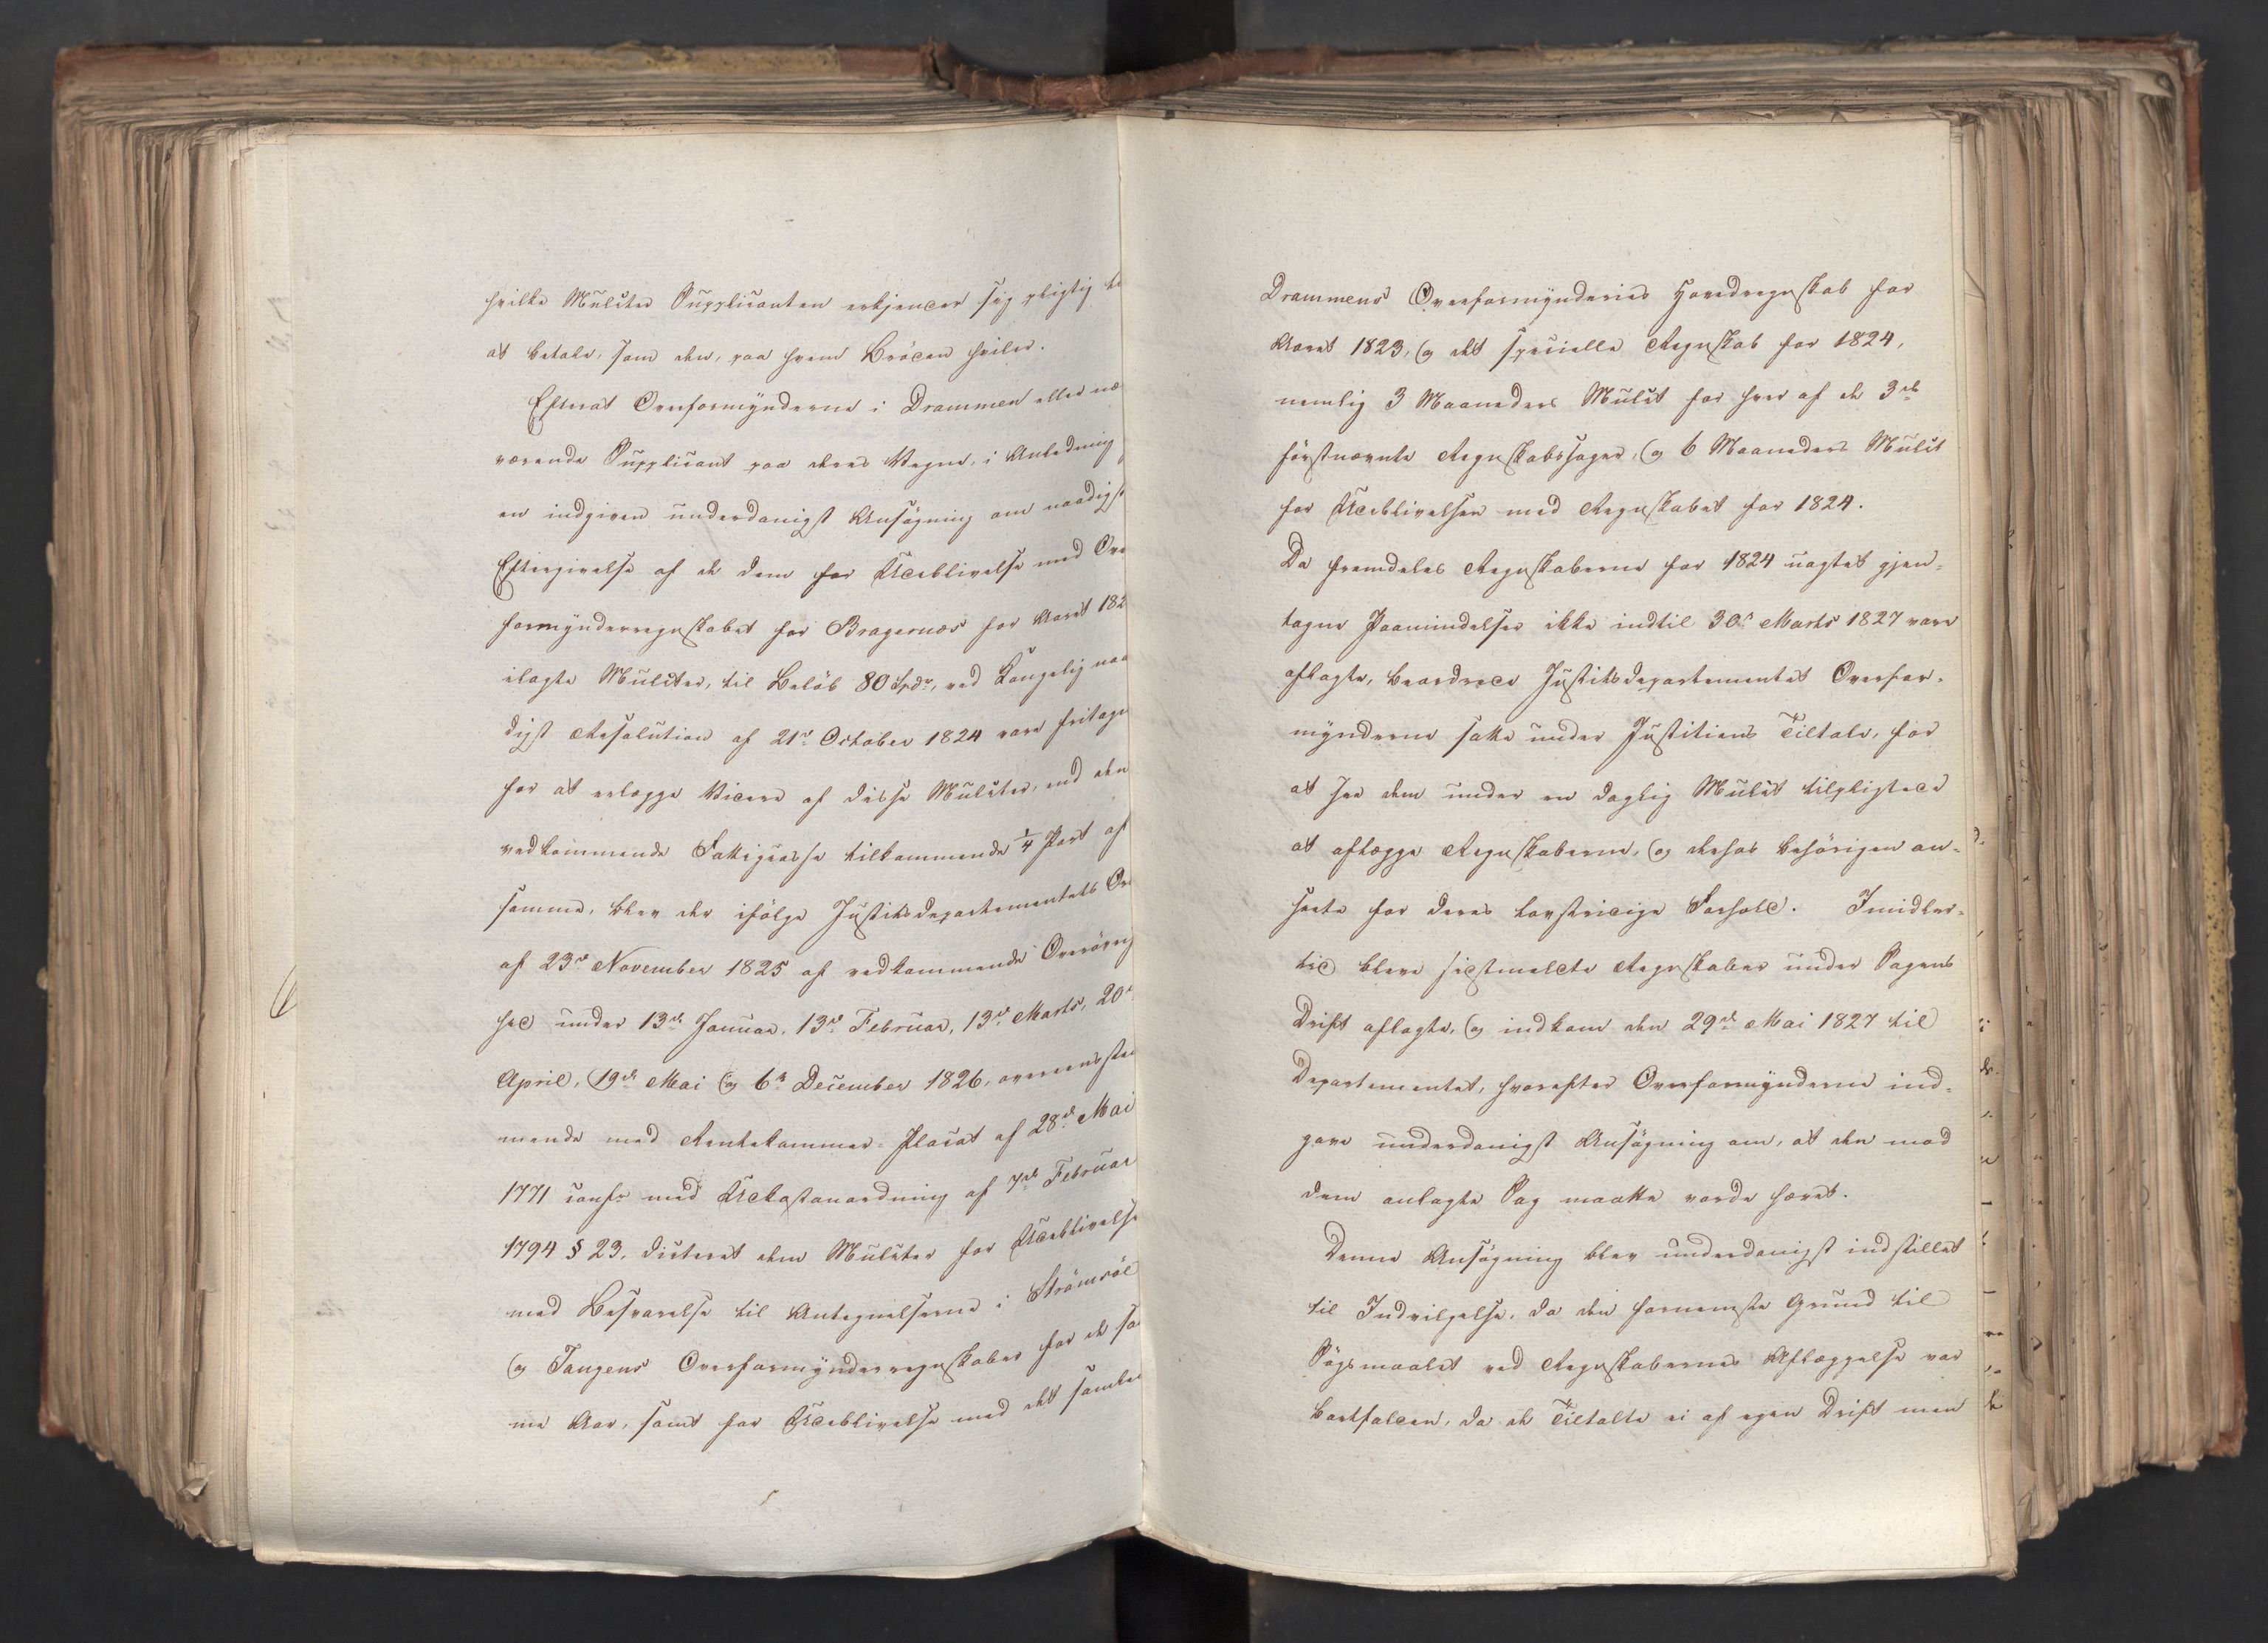 hvilke Mulcter Supplicanten erkjender sig pligtig
at betale, som den, paa hvem Bröden hviler.
Efterat Overformynderne i Drammen eller næ
værende Supplicant paa deres Vegne, i Anledning
en indgiven underdanigst Ansögning om naadigst
Eftergivelse af de dem for Udeblivelse med Ove
formynderregnskabet for Bragernæs for Aaret 182
ilagte Mulcter, til Belöb 80 Spdr, ved Kongelig naa
digst Resolution af 21de October 1824 vare fritagn
for at erlægge Videre af disse Mulcter, end den
vedkommende Fattigcasse tilkommende 1/4 Part af
samme, blev der ifölge Justitsdepartementets Or
af 23de November 1825 af vedkommende Overövrig
hed under 13de Januar, 13de Februar, 13de Marts, 20
April, 19de Mai og 6te December 1826, overensstem
mende med Rentekammer-Placat af 28de Mai
1771 confr med Udkastanordning af 7de Februar
1794 § 23, dicteret dem Mulcter for Udeblivelse
med Besvarelse til Antegnelserne i Strömsöe
og Tangens Overformynderregnskaber for de sa
me Aar, samt for Udeblivelse med det samle
Drammens Overformynderies Hovedregnskab for
Aaret 1823, og det specielle Regnskab for 1824,
nemlig 3 Maaneders Mulct for hver af de 3de
förstnævnte Regnskabssager, og 6 Maaneders Mulct
for Udeblivelsen med Regnskabet for 1824.
Da fremdeles Regnskaberne for 1824 uagtet gjen-
tagne Paamindelser ikke indtil 30te Marts 1827 vare
aflagte, beordrede Justitsdepartementet Overfor-
mynderne satte under Justitiens Tiltale, for
at faae dem under en daglig Mulct tilpligtede
at aflægge Regnskaberne, og derhos behörigen an-
seete for deres lovstridige Forhold. Imidler-
tid bleve sidstmeldte Regnskaber under Sagens
Drift aflagte, og indkom den 29de Mai 1827 til
Departementet, hvorefter Overformynderne ind-
gave underdanigst Ansögning om, at den mod
dem anlagte Sag maatte vorde hævet.
Denne Ansögning blev underdanigst indstillet
til Indvilgelse, da den fornemste Grund til
Sögsmaalet ved Regnskabernes Aflæggelse var
bortfalden, da de Tiltalte ei af egen Drift men